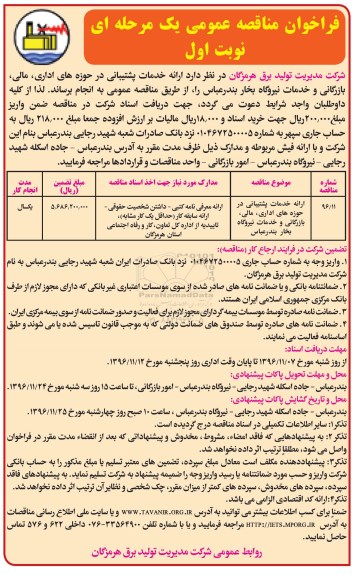 فراخوان مناقصه عمومی یک مرحله ای
نوبت اول
شرکت مدیریت تولید برق هرمزگان در نظر دارد ارائه خدمات پشتیبانی در حوزه های اداری، مالی،
بازرگانی و خدمات نیروگاه بخار بندرعباس را، از طریق مناقصه عمومی به انجام برساند. لذا از کلیه
داوطلبان واجد شرایط دعوت می گردد، جهت دریافت اسناد شرکت در مناقصه ضمن واریز
مبلغ ۲۰۰,۰۰۰ ریال جهت خرید اسناد و ۱۸,۰۰۰ ریال مالیات بر ارزش افزوده جمعا مبلغ ۲۱۸,۰۰۰ ریال به
حساب جاری سپهر به شماره ۰۱۰۴۶۷۲۵۰۰۰۰۵ نزد بانک صادرات شعبه شهید رجایی بندرعباس بنام این
شرکت و با ارائه فیش مربوطه و مدارک ذیل ظرف مدت مقرر به آدرس بندرعباس - جاده اسکله شهید
رجایی - نیروگاه بندرعباس - امور بازرگانی - واحد مناقصات و قراردادها مراجعه فرمایید.
شماره مناقصه | موضوع مناقصه | مدارک مورد نیاز جهت اخذ اسناد مناقصه | مبلغ تضمین (ریال) | مدت انجام کار
۹۶/۱۱ | ارائه خدمات پشتیبانی در حوزه های اداری، مالی، بازرگانی و خدمات نیروگاه بخار بندرعباس | ارائه معرفی نامه کتبی - داشتن شخصیت حقوقی - ارائه سابقه کار (حداقل یک کار مشابه)، تاییدیه از اداره کل تعاون، کار و رفاه اجتماعی استان هرمزگان | ۵,۶۸۶,۲۰۰,۰۰۰ | یکسال
تضمین شرکت در فرایند ارجاع کار (مناقصه):
۱. واریز وجه به شماره حساب جاری ۰۱۰۴۶۷۲۵۰۰۰۰۵ نزد بانک صادرات ایران شعبه شهید رجایی بندرعباس به نام
شرکت مدیریت تولید برق هرمزگان.
۲. ضمانتنامه بانکی و یا ضمانت نامه های صادر شده از سوی موسسات اعتباری غیر بانکی که دارای مجوز لازم از طرف
بانک مرکزی جمهوری اسلامی ایران هستند.
۳. ضمانت نامه صادره توسط موسسات بیمه گر دارای مجوز لازم برای فعالیت و صدور ضمانت نامه از سوی بیمه مرکزی ایران.
۴. ضمانت نامه های صادره توسط صندوق های ضمانت دولتی که به موجب قانون تاسیس شده یا می شوند و طبق
اساسنامه فعالیت می نمایند.
مهلت دریافت اسناد:
از روز شنبه مورخ ۱۳۹۶/۱۱/۰۷ تا پایان وقت اداری روز پنجشنبه مورخ ۱۳۹۶/۱۱/۱۲.
محل و مهلت تحویل پاکات پیشنهادی:
بندرعباس - جاده اسکله شهید رجایی - نیروگاه بندرعباس - امور بازرگانی، تا ساعت ۱۵ روز سه شنبه مورخ ۱۳۹۶/۱۱/۲۴.
محل و تاریخ گشایش پاکات پیشنهادی:
بندرعباس - جاده اسکله شهید رجایی - نیروگاه بندرعباس، ساعت ۱۰ صبح روز چهارشنبه مورخ ۱۳۹۶/۱۱/۲۵.
تذکر۱: سایر اطلاعات تکمیلی در اسناد مناقصه درج گردیده است.
تذکر۲: به پیشنهادهایی که فاقد امضاء، مشروط، مخدوش و پیشنهاداتی که بعد از انقضاء مدت مقرر در فراخوان
واصل می شود، مطلقا ترتیب اثر داده نخواهد شد.
تذکر۳: پیشنهاددهنده مکلف است معادل مبلغ سپرده، تضمین های معتبر تسلیم یا مبلغ مذکور را به حساب بانکی
شرکت واریز و حسب مورد ضمانتنامه یا رسید واریز وجه را ضمیمه پیشنهاد به شرکت تسلیم نماید. به پیشنهادهای فاقد
سپرده، سپرده های مخدوش، سپرده های کمتر از میزان مقرر، چک شخصی و نظایر آن ترتیب اثر داده نخواهد شد.
تذکر۴: ارائه کد اقتصادی الزامی می باشد.
ضمنا برای کسب اطلاعات بیشتر می توانید به آدرس WWW.TAVANIR.ORG.IR و یا سایت ملی اطلاع رسانی مناقصات
به آدرس HTTP://IETS.MPORG.IR مراجعه فرمایید و یا با شماره تلفن ۳۳۵۶۴۹۰۰-۰۷۶ داخلی ۶۲۲ و ۵۷۶ تماس
حاصل نمایید.
روابط عمومی شرکت مدیریت تولید برق هرمزگان